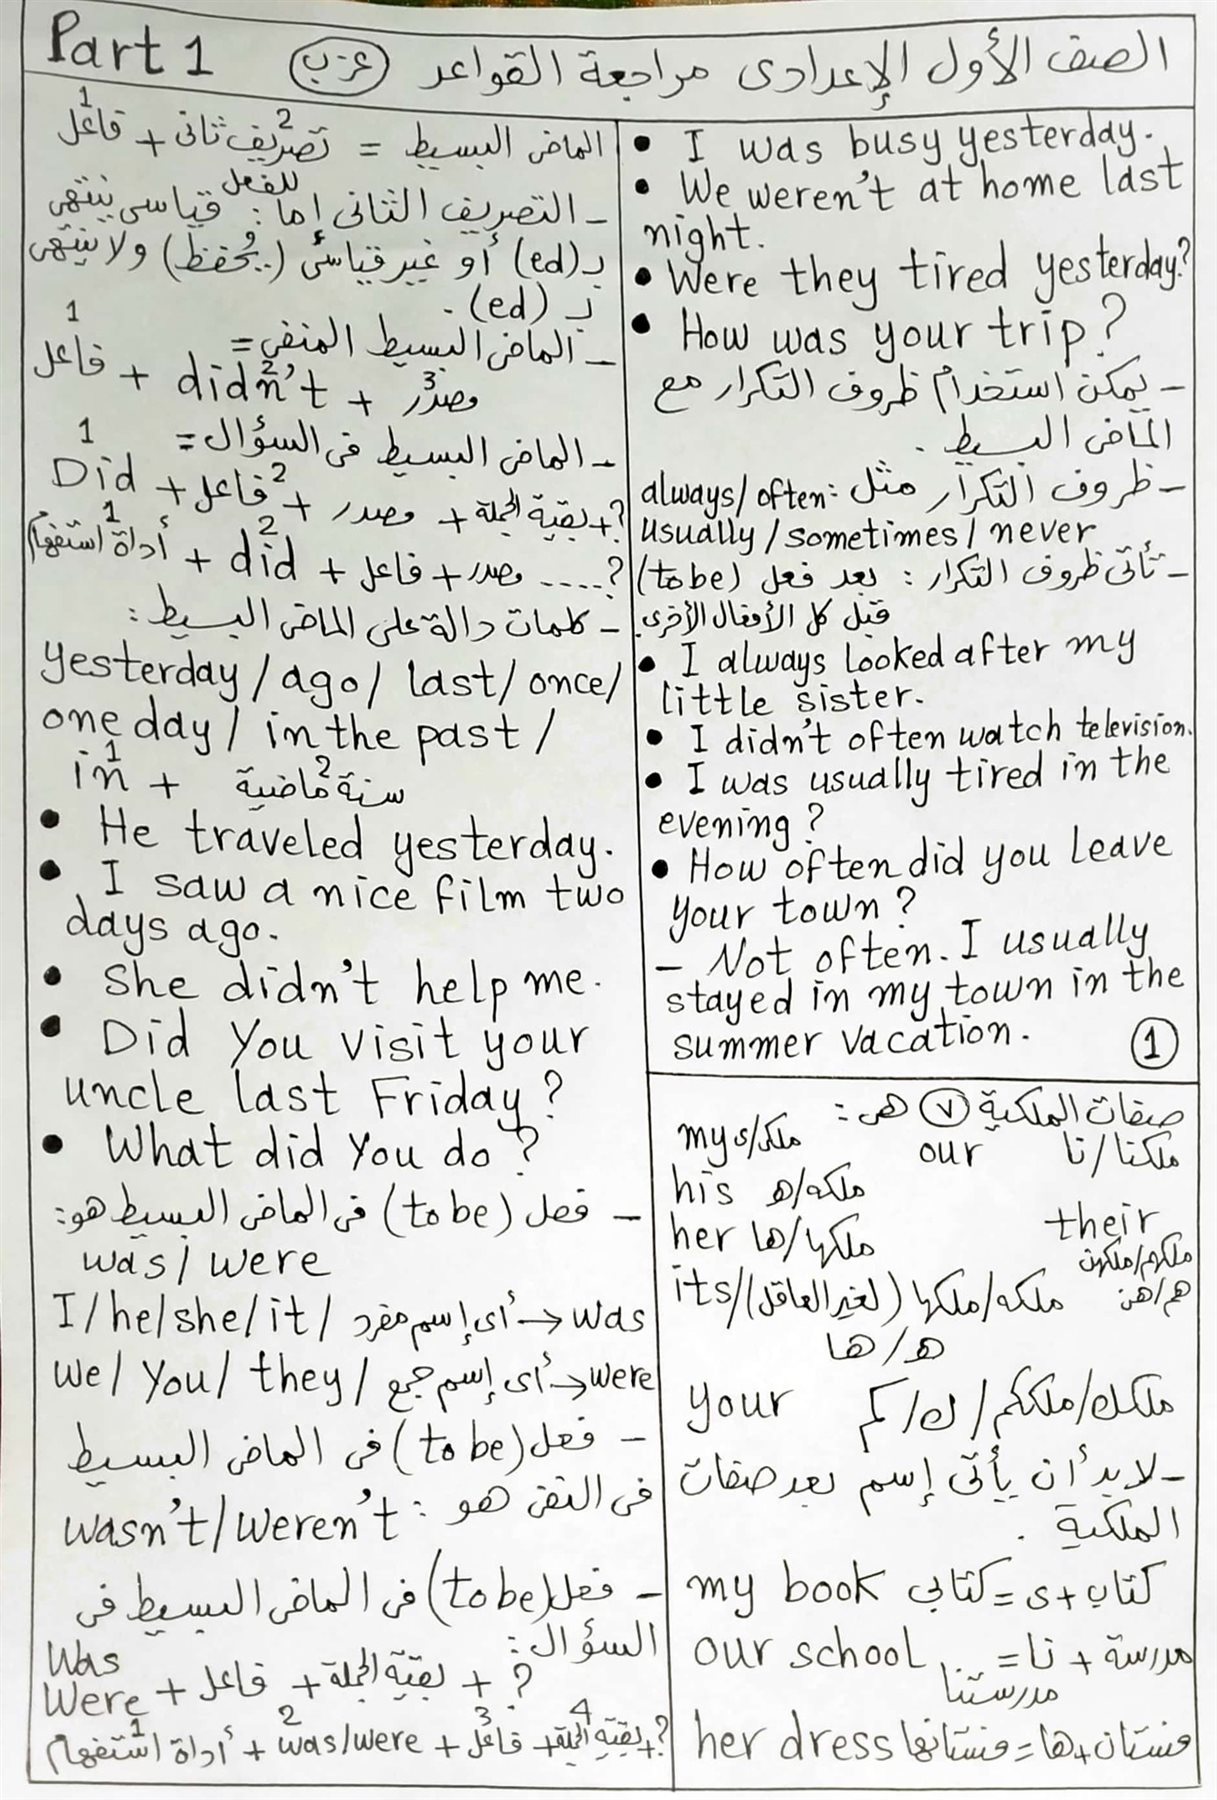 Part 1 الصف الأول الإعدادى مراجعة القواعد (عزب)
الماضى البسيط = تصريف ثانى 2 + فاعل 1
للفعل
- التصريف الثانى إما: قياسى ينتهى
بـ (ed) أو غير قياسى (يُحفظ..) ولا ينتهى
بـ (ed).
- الماضى البسيط المنفى =
فاعل 1 + didn't 2 + مصدر 3
- الماضى البسيط فى السؤال =
Did 1 + فاعل 2 + مصدر + بقية الجملة + ?
أداة استفهام 1 + did 2 + فاعل + مصدر .... ?
- كلمات دالة على الماضى البسيط:
yesterday / ago / last / once /
one day / in the past /
in 1 + سنة ماضية 2
• He traveled yesterday.
• I saw a nice film two
days ago.
• She didn't help me.
• Did you visit your
uncle last Friday?
• What did you do?
- فعل (to be) فى الماضى البسيط هو:
was / were
I / he / she / it / أى إسم مفرد → was
we / you / they / أى إسم جمع → were
- فعل (to be) فى الماضى البسيط
فى النفى هو: wasn't / weren't
- فعل (to be) فى الماضى البسيط فى
السؤال:
Was
Were + فاعل + بقية الجملة + ?
أداة استفهام 1 + was/were 2 + فاعل 3 + بقية الجملة 4 + ?
• I was busy yesterday.
• We weren't at home last
night.
• Were they tired yesterday?
• How was your trip?
- يمكن استخدام ظروف التكرار مع
الماضى البسيط.
- ظروف التكرار مثل: always / often
usually / sometimes / never
- تأتى ظروف التكرار: بعد فعل (to be)
قبل كل الأفعال الأخرى
• I always looked after my
little sister.
• I didn't often watch television.
• I was usually tired in the
evening?
• How often did you leave
your town?
- Not often. I usually
stayed in my town in the
summer vacation.
1
صفات الملكية (٧) هى:
my ملكى/ى our ملكنا/نا
his ملكه/ه
her ملكها/ها their
ملكهم/ملكهن
its / ملكه/ملكها (لغير العاقل) هم/هن
ه/ها
your ملكك/ملككم/ك/كم
- لابد أن يأتى إسم بعد صفات
الملكية.
my book كتاب + ى = كتابى
our school مدرسة + نا =
مدرستنا
her dress فستان + ها = فستانها